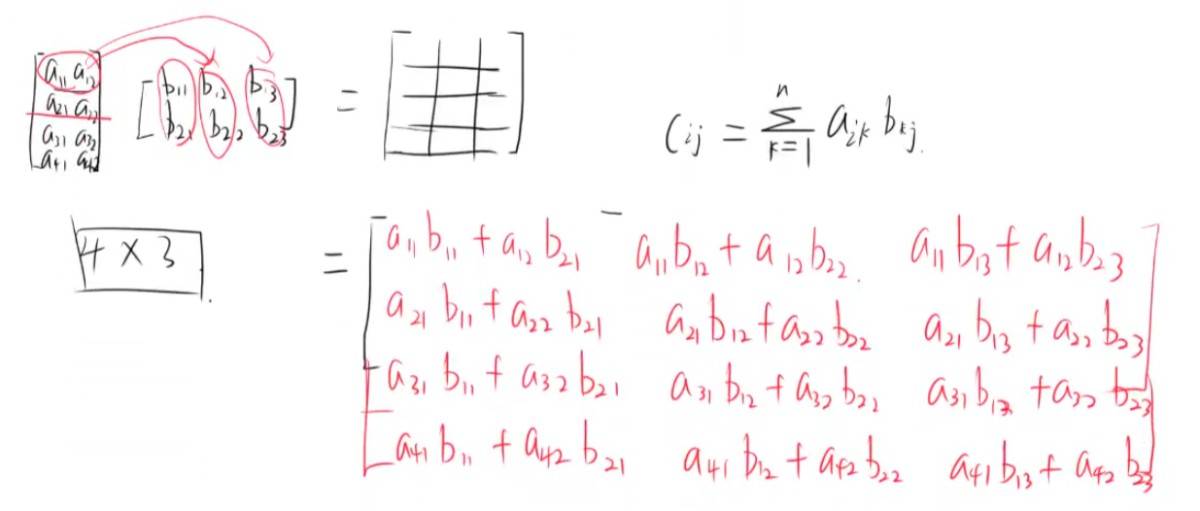 [a₁₁ a₁₂ [b₁₁ b₁₂ b₁₃ = [ ] Cᵢⱼ = Σⁿₖ₌₁ aᵢₖ bₖⱼ.
a₂₁ a₂₂ b₂₁ b₂₂ b₂₃]
a₃₁ a₃₂
a₄₁ a₄₂]
4 × 3. = [a₁₁b₁₁ + a₁₂b₂₁ a₁₁b₁₂ + a₁₂b₂₂. a₁₁b₁₃ + a₁₂b₂₃
a₂₁b₁₁ + a₂₂b₂₁ a₂₁b₁₂ + a₂₂b₂₂ a₂₁b₁₃ + a₂₂b₂₃
a₃₁b₁₁ + a₃₂b₂₁ a₃₁b₁₂ + a₃₂b₂₂ a₃₁b₁₃ + a₃₂b₂₃
a₄₁b₁₁ + a₄₂b₂₁ a₄₁b₁₂ + a₄₂b₂₂ a₄₁b₁₃ + a₄₂b₂₃]